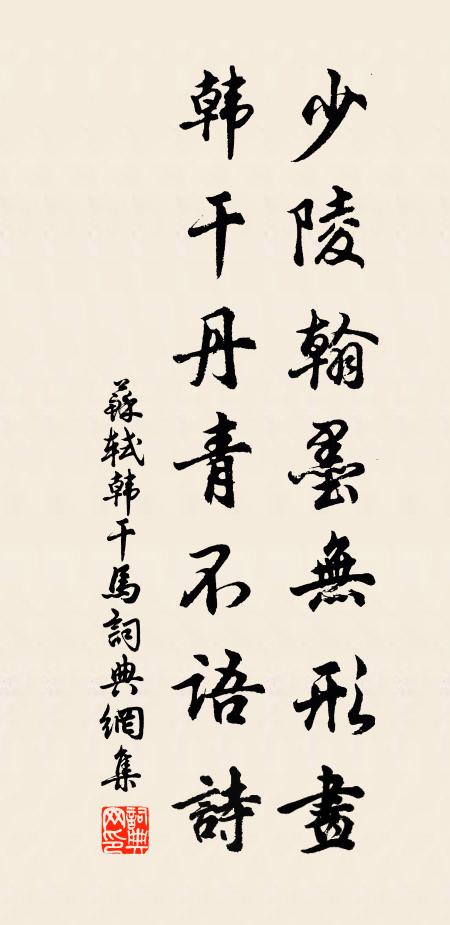 少陵翰墨無形畫
韩干丹青不语詩
蘇軾韩干馬詞典網集
詞典网印